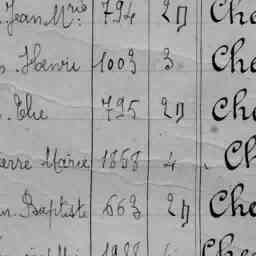 Jean Mrie 794 2D Che
Henri 1003 3 Che
Elie 795 2D Che
erre Marie 1868 4 Ch
n Baptiste 663 2D Che
Che